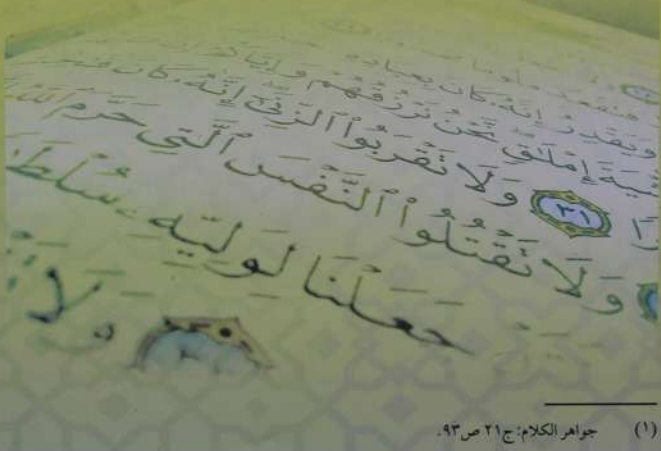 فَتَقْعُدَ مَلُومًا
وَيَقْدِرُ إِنَّهُ كَانَ بِعِبَادِهِ
إِمْلَٰقٍ نَّحْنُ نَرْزُقُهُمْ وَإِيَّاكُمْ
٣١ وَلَا تَقْرَبُوا۟ ٱلزِّنَىٰٓ إِنَّهُۥ كَانَ
وَلَا تَقْتُلُوا۟ ٱلنَّفْسَ ٱلَّتِي حَرَّمَ ٱللَّهُ
جَعَلْنَا لِوَلِيِّهِۦ سُلْطَٰ
وَلَا
(١) جواهر الكلام: ج٢١ ص٩٣.